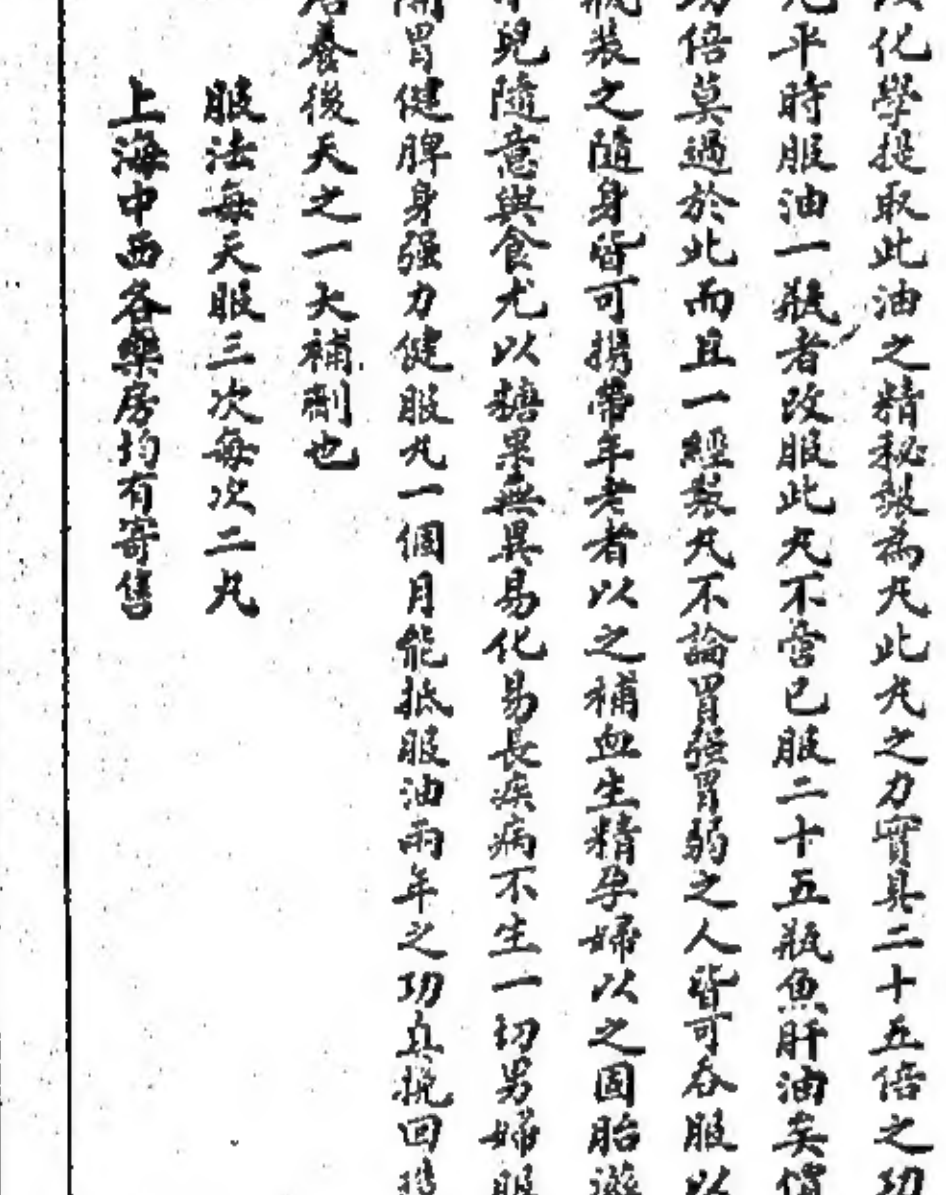 化學提取此油之精秘製為丸此丸之力實具二十五倍之功
平時服油一瓶者改服此丸不啻已服二十五瓶魚肝油矣價
倍莫過於此而且一經製丸不論胃強胃弱之人皆可吞服以
裝之隨身皆可攜帶年老者以之補血生精孕婦以之固胎滋
兒隨意與食尤以糖果無異易化易長疾病不生一切男婦服
胃健脾身强力健服丸一個月能抵服油兩年之功真挽回
養後天之一大補劑也
服法每天服三次每次二丸
上海中西各藥房均有寄售